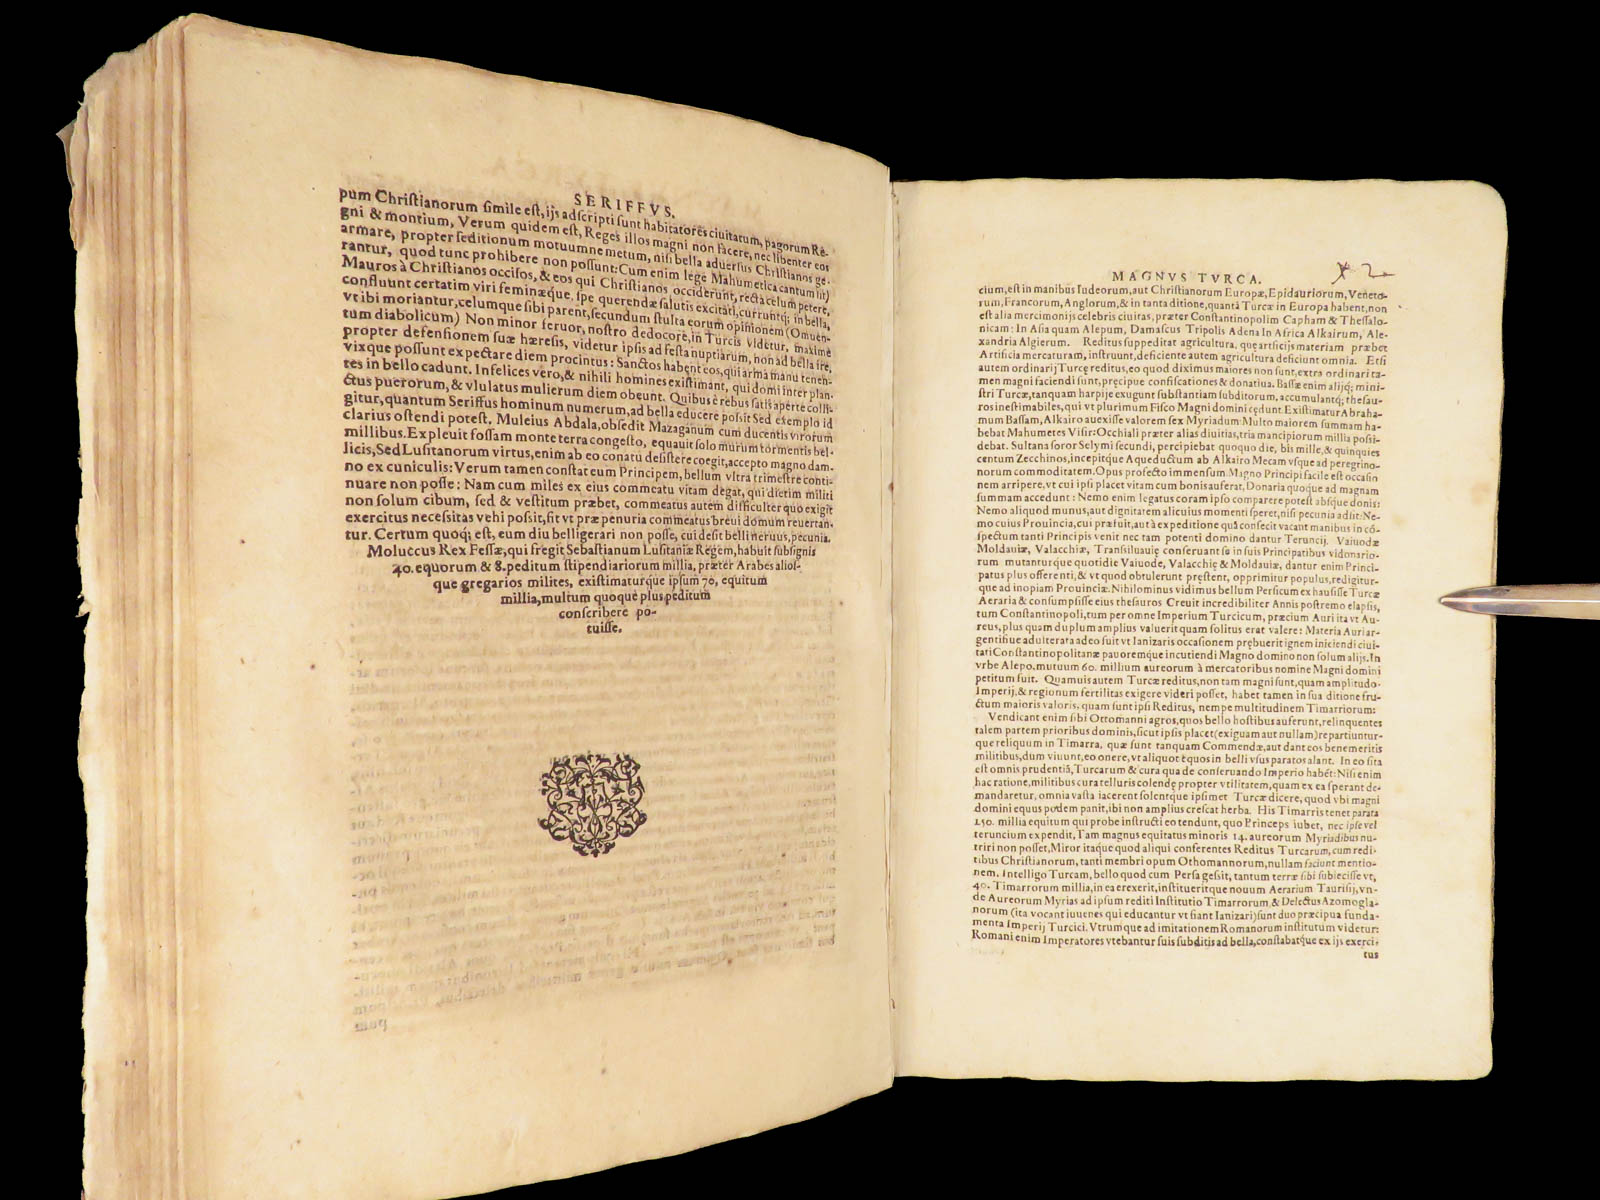 SERIFFVS.
pum Chriſtianorum ſimile eſt, ijs adſcripti ſunt habitatores ciuitatum, pagorum Re-
gni & montium, Verum quidem eſt, Reges illos magni non facere, nec libenter eos
armare, propter ſeditionum motuumne metum, niſi bella aduerſus Chriſtianos ge-
rantur, quod tunc prohibere non poſſunt: Cum enim lege Mahumetica cantum ſit)
Mauros à Chriſtianos occiſos, & eos qui Chriſtianos occiderunt, recta cęlum petere,
confluunt certatim viri feminæque, ſpe querendæ ſalutis excitati, curruntq; in bella,
vt ibi moriantur, celumque ſibi parent, ſecundum ſtulta eorum opinionem (Omuen-
tum diabolicum) Non minor feruor, noſtro dedocore, in Turcis videtur, maxime
propter defenſionem ſuæ hæreſis, videtur ipſis ad feſta nuptiarum, non ad bella ire,
vixque poſſunt expectare diem procintus: Sanctos habent eos, qui arma manu tenen-
tes in bello cadunt. Infelices vero, & nihili homines exiſtimant, qui domi inter plan-
ctus puerorum, & vlulatus mulierum diem obeunt. Quibus è rebus ſatis aperte colli-
gitur, quantum Seriffus hominum numerum, ad bella educere poſsit Sed exemplo id
clarius oſtendi poteſt. Muleius Abdala, obſedit Mazaganum cum ducentis virorum
millibus. Expleuit foſſam monte terra congeſto, equauit ſolo murum tormentis bel-
licis, Sed Luſitanorum virtus, enim ab eo conatu deſiſtere coegit, accepto magno dam-
no ex cuniculis: Verum tamen conſtat eum Principem, bellum vltra trimeſtre conti-
nuare non poſſe: Nam cum miles ex eius commeatu vitam degat, qui dietim militi
non ſolum cibum, ſed & veſtitum præbet, commeatus autem difficulter quo exigit
exercitus neceſsitas vehi poſsit, fit vt præ penuria commeatus breui domum reuertan-
tur. Certum quoq; eſt, eum diu belligerari non poſſe, cui deſit belli neruus, pecunia.
Moluccus Rex Feſſæ, qui fregit Sebaſtianum Luſitaniæ Regem, habuit ſub ſignis
40. equorum & 8. peditum ſtipendiariorum millia, præter Arabes alioſ-
que gregarios milites, exiſtimaturque ipſum 70, equitum
millia, multum quoque plus peditum
conſcribere po-
tuiſſe.
MAGNVS TVRCA.
cium, eſt in manibus Iudeorum, aut Chriſtianorum Europæ, Epidauriorum, Veneto-
rum, Francorum, Anglorum, & in tanta ditione, quantā Turcæ in Europa habent, non
eſt alia mercimonijs celebris ciuitas, præter Conſtantinopolim Capham & Theſſalo-
nicam: In Aſia quam Alepum, Damaſcus Tripolis Adena In Africa Alkairum, Ale-
xandria Algierum. Reditus ſuppeditat agricultura, que artificijs materiam præbet
Artificia mercaturam, inſtruunt, deficiente autem agricultura deficiunt omnia. Etſi
autem ordinarij Turcę reditus, eo quod diximus maiores non ſunt, extra ordinari ta-
men magni faciendi ſunt, pręcipue confiſcationes & donatiua. Baſſæ enim alijq; mini-
ſtri Turcæ, tanquam harpije exugunt ſubſtantiam ſubditorum, accumulantq; theſau-
ros ineſtimabiles, qui vt plurimum Fiſco Magni domini cędunt. Exiſtimatur Abraha-
mum Baſſam, Alkairo auexiſſe valorem ſex Myriadum: Multo maiorem ſummam ha-
bebat Mahumetes Viſir: Occhiali præter alias diuitias, tria mancipiorum millia poſſi-
debat. Sultana ſoror Selymi ſecundi, percipiebat quoquo die, bis mille, & quinquies
centum Zecchinos, incepitque Aqueductum ab Alkairo Mecam vſque ad peregrino-
norum commoditatem. Opus profecto immenſum. Magno Principi facile eſt occaſio
nem arripere, vt cui ipſi placet vitam cum bonis auferat, Donaria quoque ad magnam
ſummam accedunt: Nemo enim legatus coram ipſo comparere poteſt abſque donis:
Nemo aliquod munus, aut dignitatem alicuius momenti ſperet, niſi pecunia adſit: Ne-
mo cuius Prouincia, cui præfuit, aut à ex peditione quā confecit vacant manibus in cō-
ſpectum tanti Principis venit nec tam potenti domino dantur Teruncij. Vaiuodæ
Moldauiæ, Valacchiæ, Tranſiluauię conſeruant ſe in ſuis Principatibus vi donario-
rum mutanturque quotidie Vaiuode, Valacchię & Moldauiæ, dantur enim Princi-
patus plus offerenti, & vt quod obtulerunt pręſtent, opprimitur populus, redigitur-
que ad inopiam Prouinciæ. Nihilominus vidimus bellum Perſicum exhauſiſſe Turcæ
Aeraria & conſumpſiſſe eius theſauros Creuit incredibiliter Annis poſtremo elapſis,
tum Conſtantinopoli, tum per omne Imperium Turcicum, præcium Auri ita vt Au-
reus, plus quam duplum amplius valuerit quam ſolitus erat valere: Materia Auri ar-
gentiſue adulterata adeo fuit vt Ianizaris occaſionem prębuerit ignem iniiciendi ciui-
tati Conſtantinopolitanæ pauoremque incutiendi Magno domino non ſolum alijs. In
vrbe Alepo, mutuum 60. millium aureorum à mercatoribus nomine Magni domini
petitum fuit. Quamuis autem Turcæ reditus, non tam magni ſunt, quam amplitudo
Imperij, & regionum fertilitas exigere videri poſſet, habet tamen in ſua ditione fru-
ctum maioris valoris, quam ſunt ipſi Reditus, nempe multitudinem Timarriorum:
Vendicant enim ſibi Ottomanni agros, quos bello hoſtibus auferunt, relinquentes
talem partem prioribus dominis, ſicut ipſis placet (exiguam aut nullam) repartiuntur-
que reliquum in Timarra, quæ ſunt tanquam Commendæ, aut dant eos benemeritis
militibus, dum viuunt, eo onere, vt aliquot equos in belli vſus paratos alant. In eo ſita
eſt omnis prudentiā, Turcarum & cura qua de conſeruando Imperio habēt: Niſi enim
hac ratione, militibus cura telluris colendę propter vtilitatem, quam ex ea ſperant de-
mandaretur, omnia vaſta iacerent ſolentque ipſimet Turcæ dicere, quod vbi magni
domini equus pedem panit, ibi non amplius creſcat herba. His Timarris tenet parata
150. millia equitum qui probe inſtructi eo tendunt, quo Princeps iubet, nec ipſe vel
teruncium expendit, Tam magnus equitatus minoris 14. aureorum Myriadibus nu-
triri non poſſet, Miror itaque quod aliqui conferentes Reditus Turcarum, cum redi-
tibus Chriſtianorum, tanti membri opum Othomannorum, nullam faciunt mentio-
nem. Intelligo Turcam, bello quod cum Perſa geſſit, tantum terræ ſibi ſubieciſſe vt,
40. Timarrorum millia, in ea erexerit, inſtitueritque nouum Aerarium Tauriſij, vn-
de Aureorum Myrias ad ipſum rediti Inſtitutio Timarrorum, & Delectus Azomogla-
norum (ita vocant iuuenes qui educantur vt fiant Ianizari) ſunt duo præcipua funda-
menta Imperij Turcici. Vtrumque ad imitationem Romanorum inſtitutum videtur:
Romani enim Imperatores vtebantur ſuis ſubditis ad bella, conſtabatque ex ijs exerci-
tus